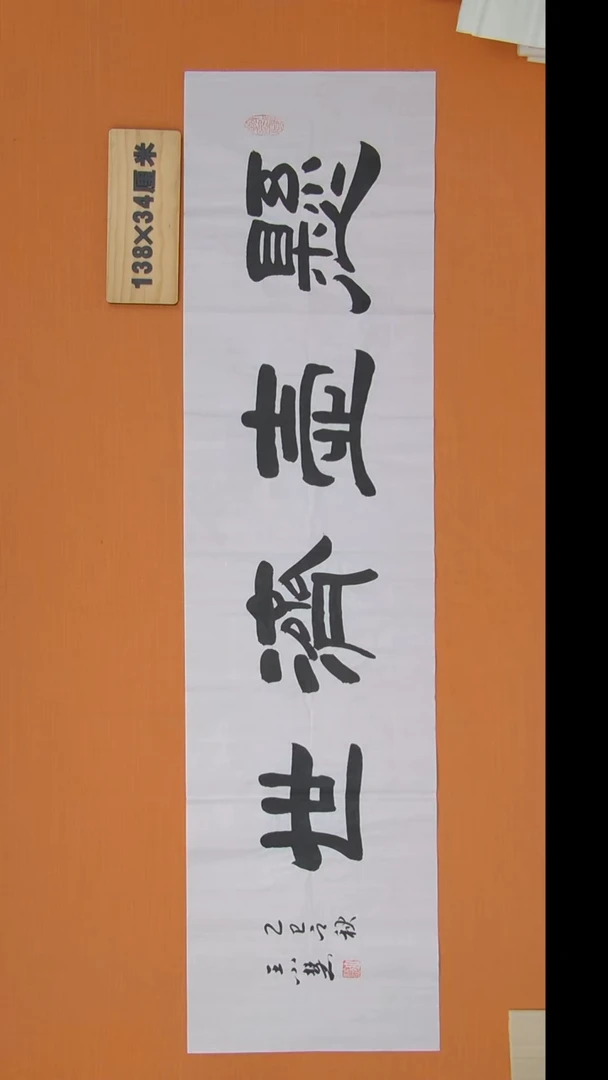 138×34厘米
懸壺濟世
乙巳年秋
王小慧